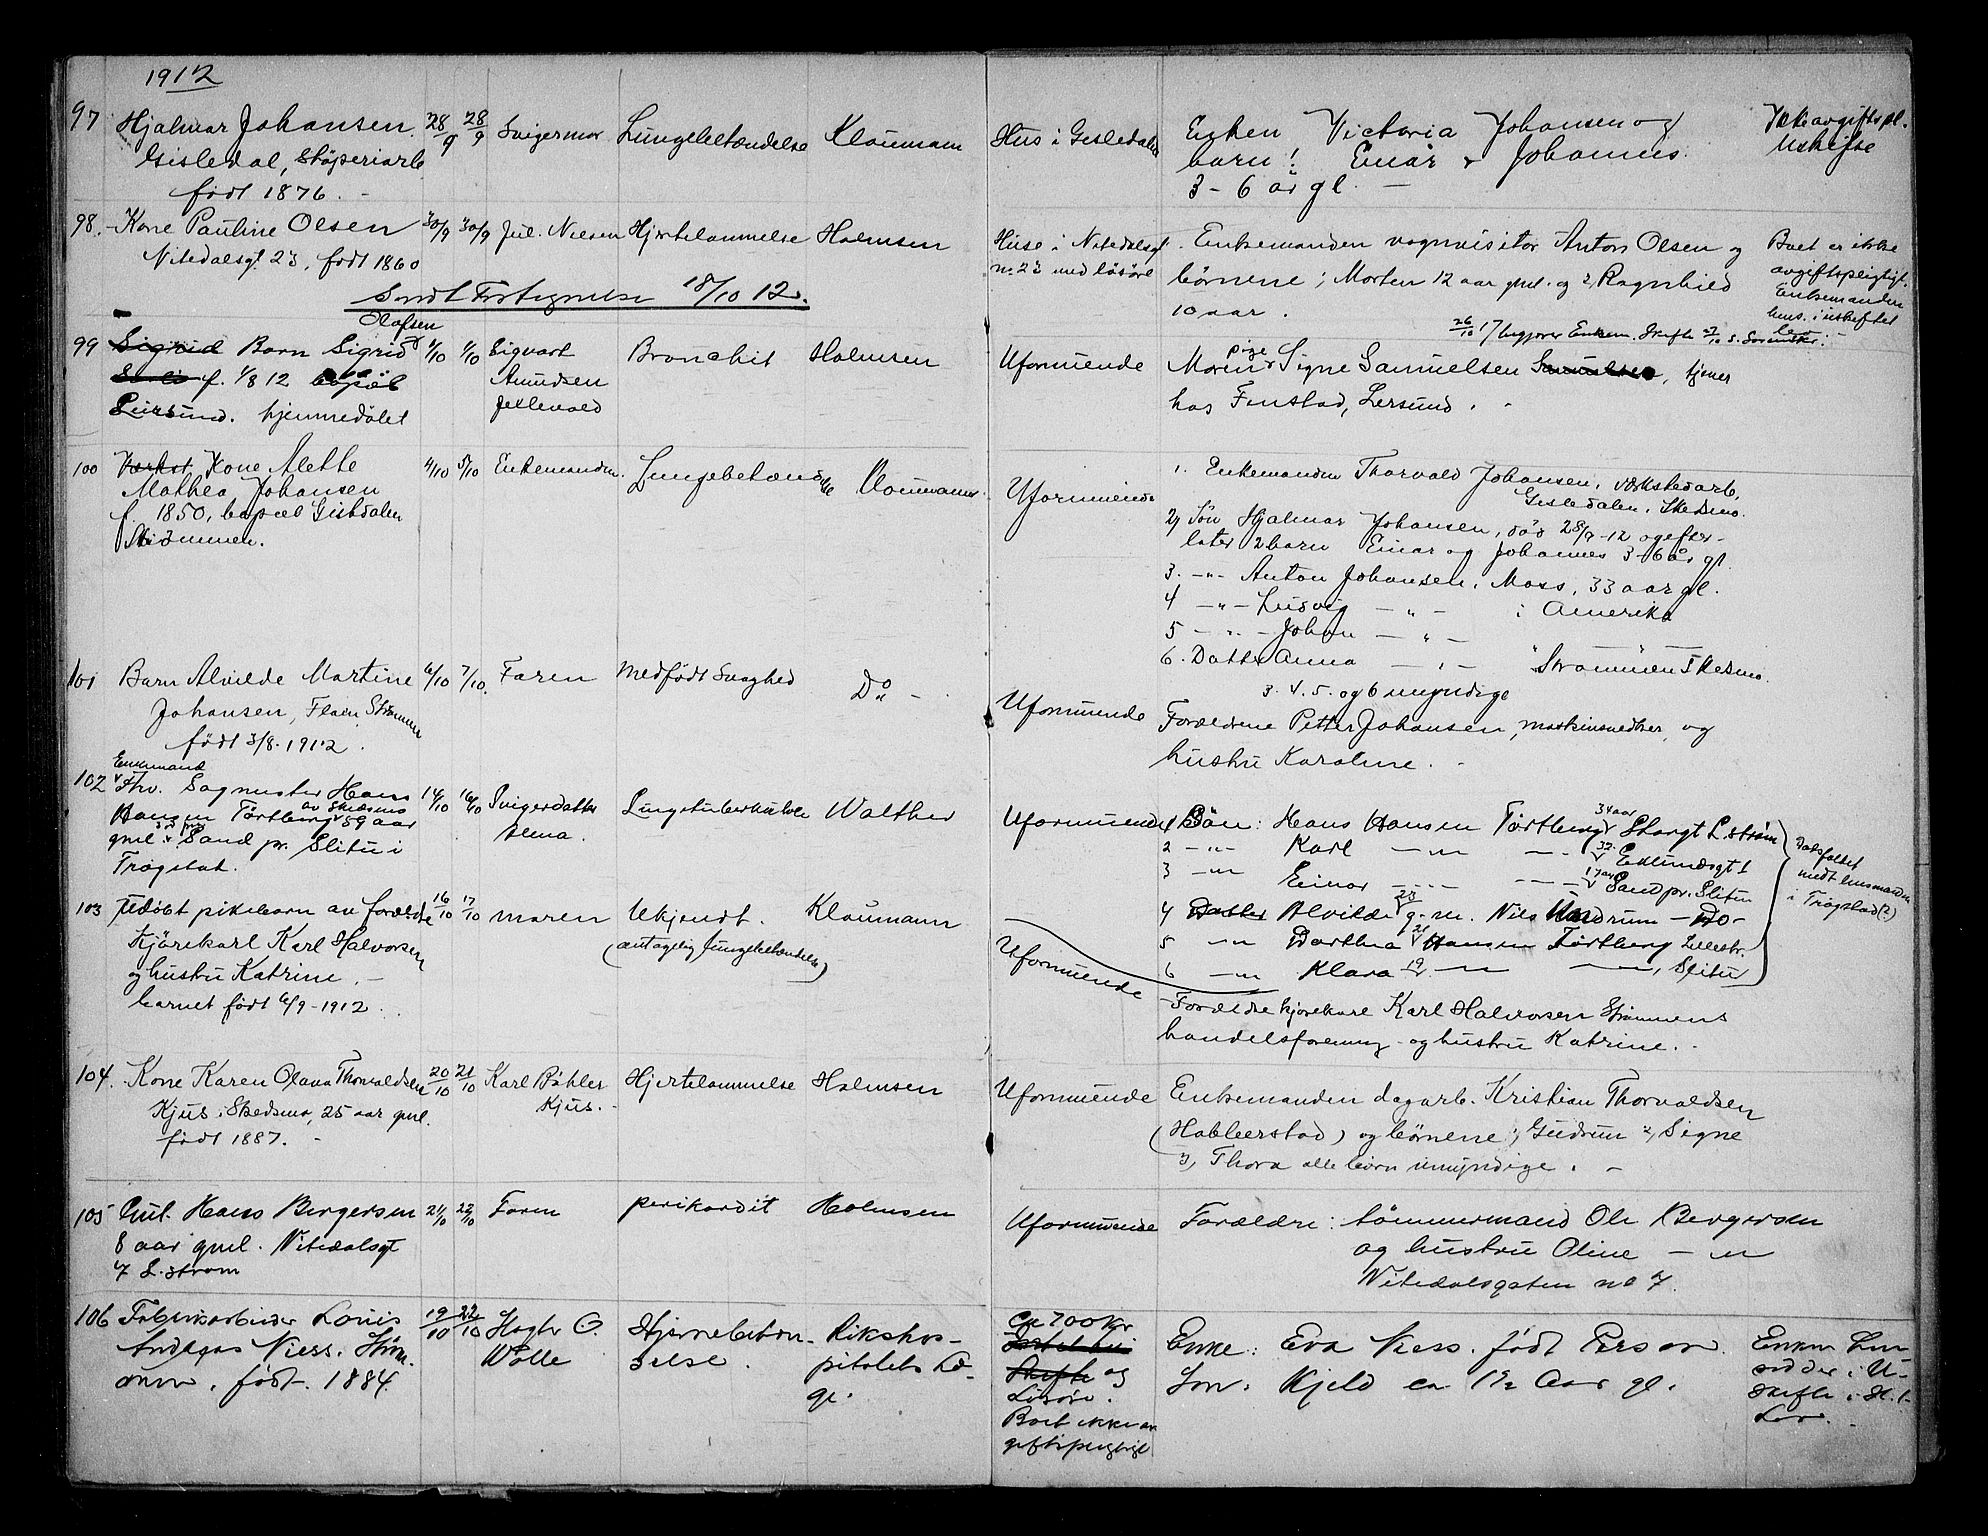 1912
97 Hjalmar Johansen 28/9 28/9 Svigermor Lungebetændelse Klaumann
Gisledal, Støperiarb
født 1876. -
Hus i Gisledalen
Enken Victoria Johansen og
barn: Einar & Johannes.
3 - 6 år gl. -
Ikke avgiftspl.
Uskifte
98. Kone Pauline Olsen 30/9 30/9 Jul. Nielsen Hjertelammelse Holmsen
Nitedalsgt. 23, født 1860
Huse i Nitedalsgt
no. 23 med løsøre
Enkemanden vognvisitør Anton Olsen og
børnene 1, Morten 12 aar gml. og 2, Ragnhild
10 aar.
Boet er ikke
avgiftspligtigt.
Enkemanden
hens. i uskiftet
bo
Sendt Fortegnelse 18/10 12.
26/10 17 begjærer Enkem. Skifte
Olafsen
99 Sigrid Barn Sigrid 1/10 1/10 Sigvart Bronchit Holmsen
f. 1/8 12 bopæl
Leirsund. hjemmedøbt
Amundsen
Jellevold
Uformuende
Moren pige Signe Samuelsen Samuelsen, tjener
hos Fonstad, Lersund. -
100 Værkst. Kone Alette 4/10 5/10 Enkemanden. Lungebetændelse Klaumann.
Mathea Johansen
f. 1850, bopæl Gisledalen
Strømmen.
Uformuende
1. Enkemanden Thorvald Johansen, værkstedarb.
Gisledalen, Skedsmo.
2, Søn Hjalmar Johansen, død 28/9-12 og efter-
later 2 barn Einar og Johannes 3-6 år gl.
3. -"- Anton Johansen, Moss, 33 aar gl.
4 -"- Ludvig - " - i Amerika
5 -"- Johan - " -
6. Datter Anna - " - Strømmen Skedsmo.
3. 4. 5. og 6 umyndige
101 Barn Alvilde Martine 6/10 7/10. Faren Medfødt Svaghed Do -
Johansen, Flaen Strømmen
født 3/8-1912.
Uformuende
Forældrene Petter Johansen, maskinsnedker, og
hustru Karoline.
Enkemand
102 Fhv. Sagmester Hans 14/10 16/10 Svigerdatter Lungetuberkulose Walther
Hansen Tørtberg av Skedsmo 59 aar
gml. Sand pr. Slitu i
Trøgstat.
Alma.
Uformuende
1 Søn: Hans Hansen Tørtberg 34 aar Storgt L.strøm
2 -"- Karl -"- - 32 Eklundsgt 1
3 -"- Einar -"- - 17 aar Sand pr. Slitu
4 Datter Alvilde 23 g. m. Nils Undrum - Do -
5 -"- Dorthea 21 Hansen Tørtberg Lillestr.
6 -"- Klara 19 -"- -"-, Slitu
Dødsfaldet
medt lensmanden
i Trøgstad (?)
103 Udøbt pikebarn av forældre 16/10 17/10 moren Ukjendt. Klaumann
Kjørekarl Karl Halvorsen
og hustru Katrine. -
barnet født 6/9-1912.
(antagelig Lungebetændelse)
Uformuende
Forældre kjørekarl Karl Halvorsen Strømmens
handelsforening og hustru Katrine. -
104. Kone Karen Olava Thorvaldsen 20/10 21/10 Karl Bøhler Hjertelammelse Holmsen
Kjus i Skedsmo, 25 aar gml.
født 1887. -
Kjus. -
Uformuende
Enkemanden dagarb. Kristian Thorvaldsen
(Hableerstad) og børnene 1, Gudrun 2, Signe
3, Thora alle børn umyndige. -
105 Gut. Hans Bergersen 21/10 22/10 Faren perikardit Holmsen
8 aar gml. Nitedalsgt
7 L.strøm
Uformuende
Forældre: tømmermand Ole Bergersen
og hustru Oline - "
Nitedalsgaten no 7.
106 Fabrikarbeider Louis 19/10 22/10 Hagb. O. Hjernebetæn- Rikshos-
Andreas Niess. Strøm-
men, født 1884.
Wolle
delse.
pitalets Læ-
ge.
Ca 700 kr
Skifte og
Løsøre.
Boet ikke av
giftspligtigt
Enke: Eva Niess. født Person.
Søn: Kjeld ca 1½ Aar gl.
Enken hen
sidder i U-
skifte i H. t.
Lov. -